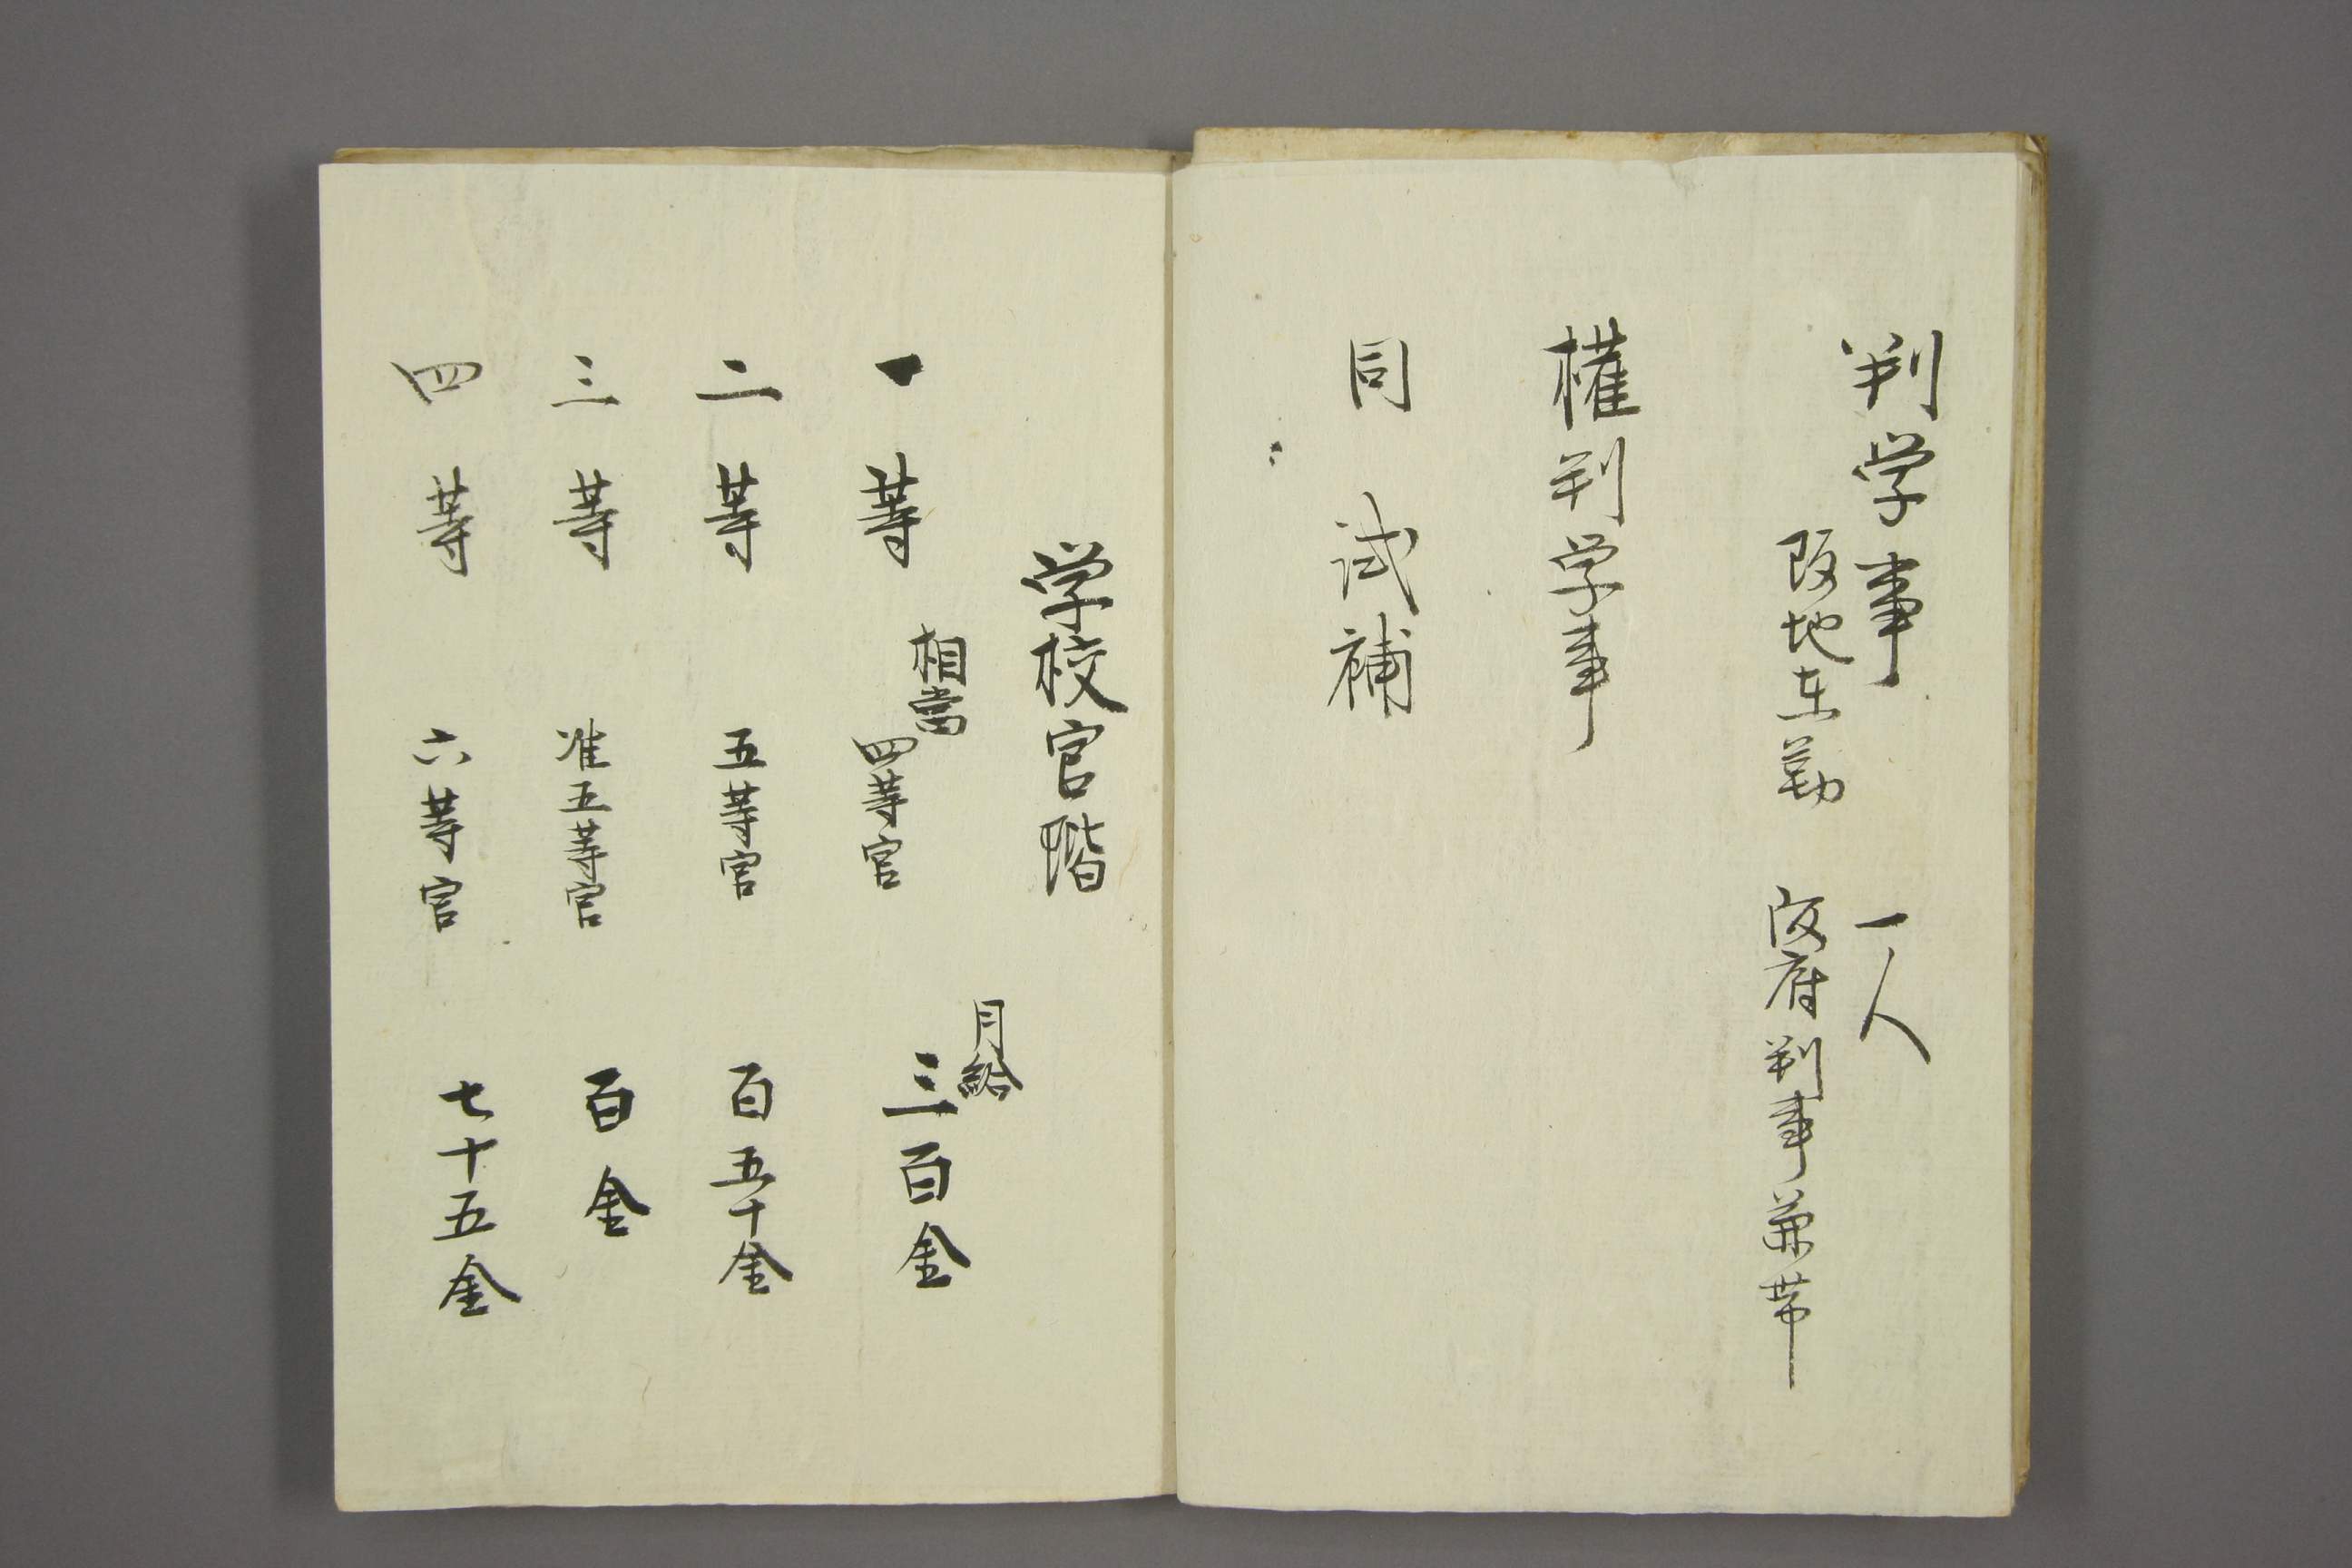 判学事 一人
阪地在勤 阪府判事兼帯
權判学事
同 試補
学校官階
相當 月給
一等 四等官 三百金
二等 五等官 百五十金
三等 准五等官 百金
四等 六等官 七十五金